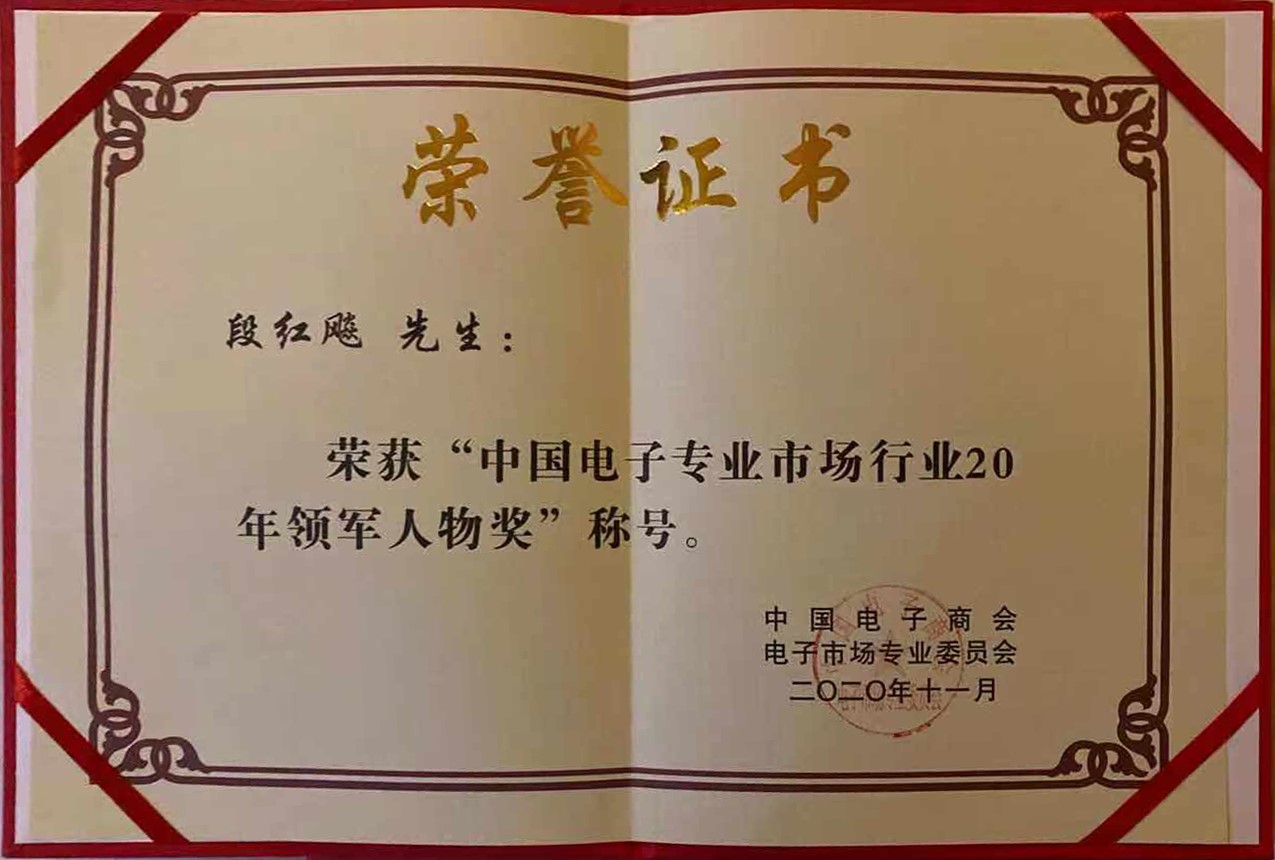 荣誉证书
段红飚 先生：
荣获“中国电子专业市场行业20
年领军人物奖”称号。
中国电子商会
电子市场专业委员会
二〇二〇年十一月